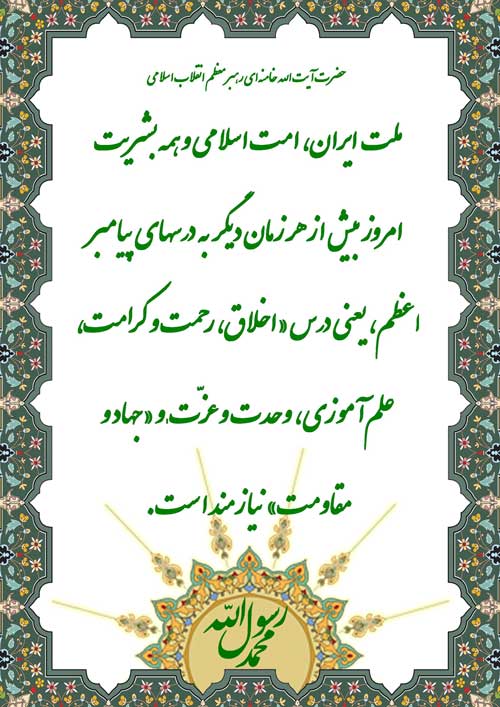 حضرت آیت الله خامنه ای رهبر معظم انقلاب اسلامی
ملت ایران، امت اسلامی و همه بشریت
امروز بیش از هر زمان دیگر به درسهای پیامبر
اعظم، یعنی درس «اخلاق، رحمت و کرامت،
علم آموزی، وحدت و عزّت» و «جهاد و
مقاومت» نیازمند است.
محمد رسول الله